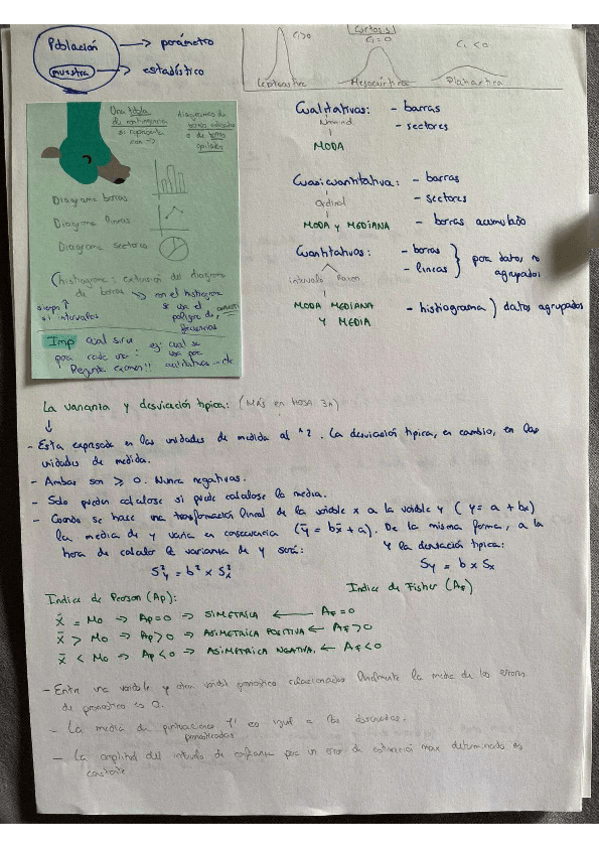 Población → parámetro
muestra → estadístico
Curtosis
C₁>0 C₁=0 C₁<0
Leptocúrtica Mesocúrtica Platicúrtica
Una tabla
de contingencia
se representa
con →
diagramas de
barras
o de
Diagrama barras
Diagrama líneas
Diagrama sectores
(histograma: extensión del diagrama
de barras → con el histograma
se usa el
polígono de
frecuencias
siempre ↑
si intervalos
Imp cual sirve
para cada una:
Pregunta examen!!
ej: cual se
usa para
cualitativas
Cualitativas: - barras
Nominal - sectores
MODA
Cuasicuantitativa: - barras
Ordinal - sectores
MODA Y MEDIANA - barras acumulado
Cuantitativas: - barras
- lineas } para datos no
agrupados
intervalo Razon
MODA MEDIANA
Y MEDIA
- histograma } datos agrupados
La varianza y desviación típica: (MÁS en HOJA 3A)
↓
- Esta expresada en las unidades de medida al ^2. La desviación típica, en cambio, en las
unidades de medida.
- Ambas son ≥ 0. Nunca negativas.
- Solo pueden calcularse si puede calcularse la media.
- Cuando se hace una transformación lineal de la variable x a la variable y (y = a + bx)
la media de y varía en consecuencia (ȳ = bx̄ + a). De la misma forma, a la
hora de calcular la varianza de y será: Y la desviación típica:
S²y = b² x S²x Sy = b x Sx
Índice de Pearson (Ap): Índice de Fisher (AF)
x̄ = Mo → Ap=0 → SIMETRICA ← AF=0
x̄ > Mo → Ap>0 → ASIMETRICA POSITIVA ← AF>0
x̄ < Mo → Ap<0 → ASIMETRICA NEGATIVA. ← AF<0
- Entre una variable y otra variable pronostico relacionados linealmente la media de los errores
de pronostico es 0.
- La media de puntuaciones Y' es igual a las
pronosticadas
- La amplitud del intervalo de confianza para un error de estimación max determinado es
constante